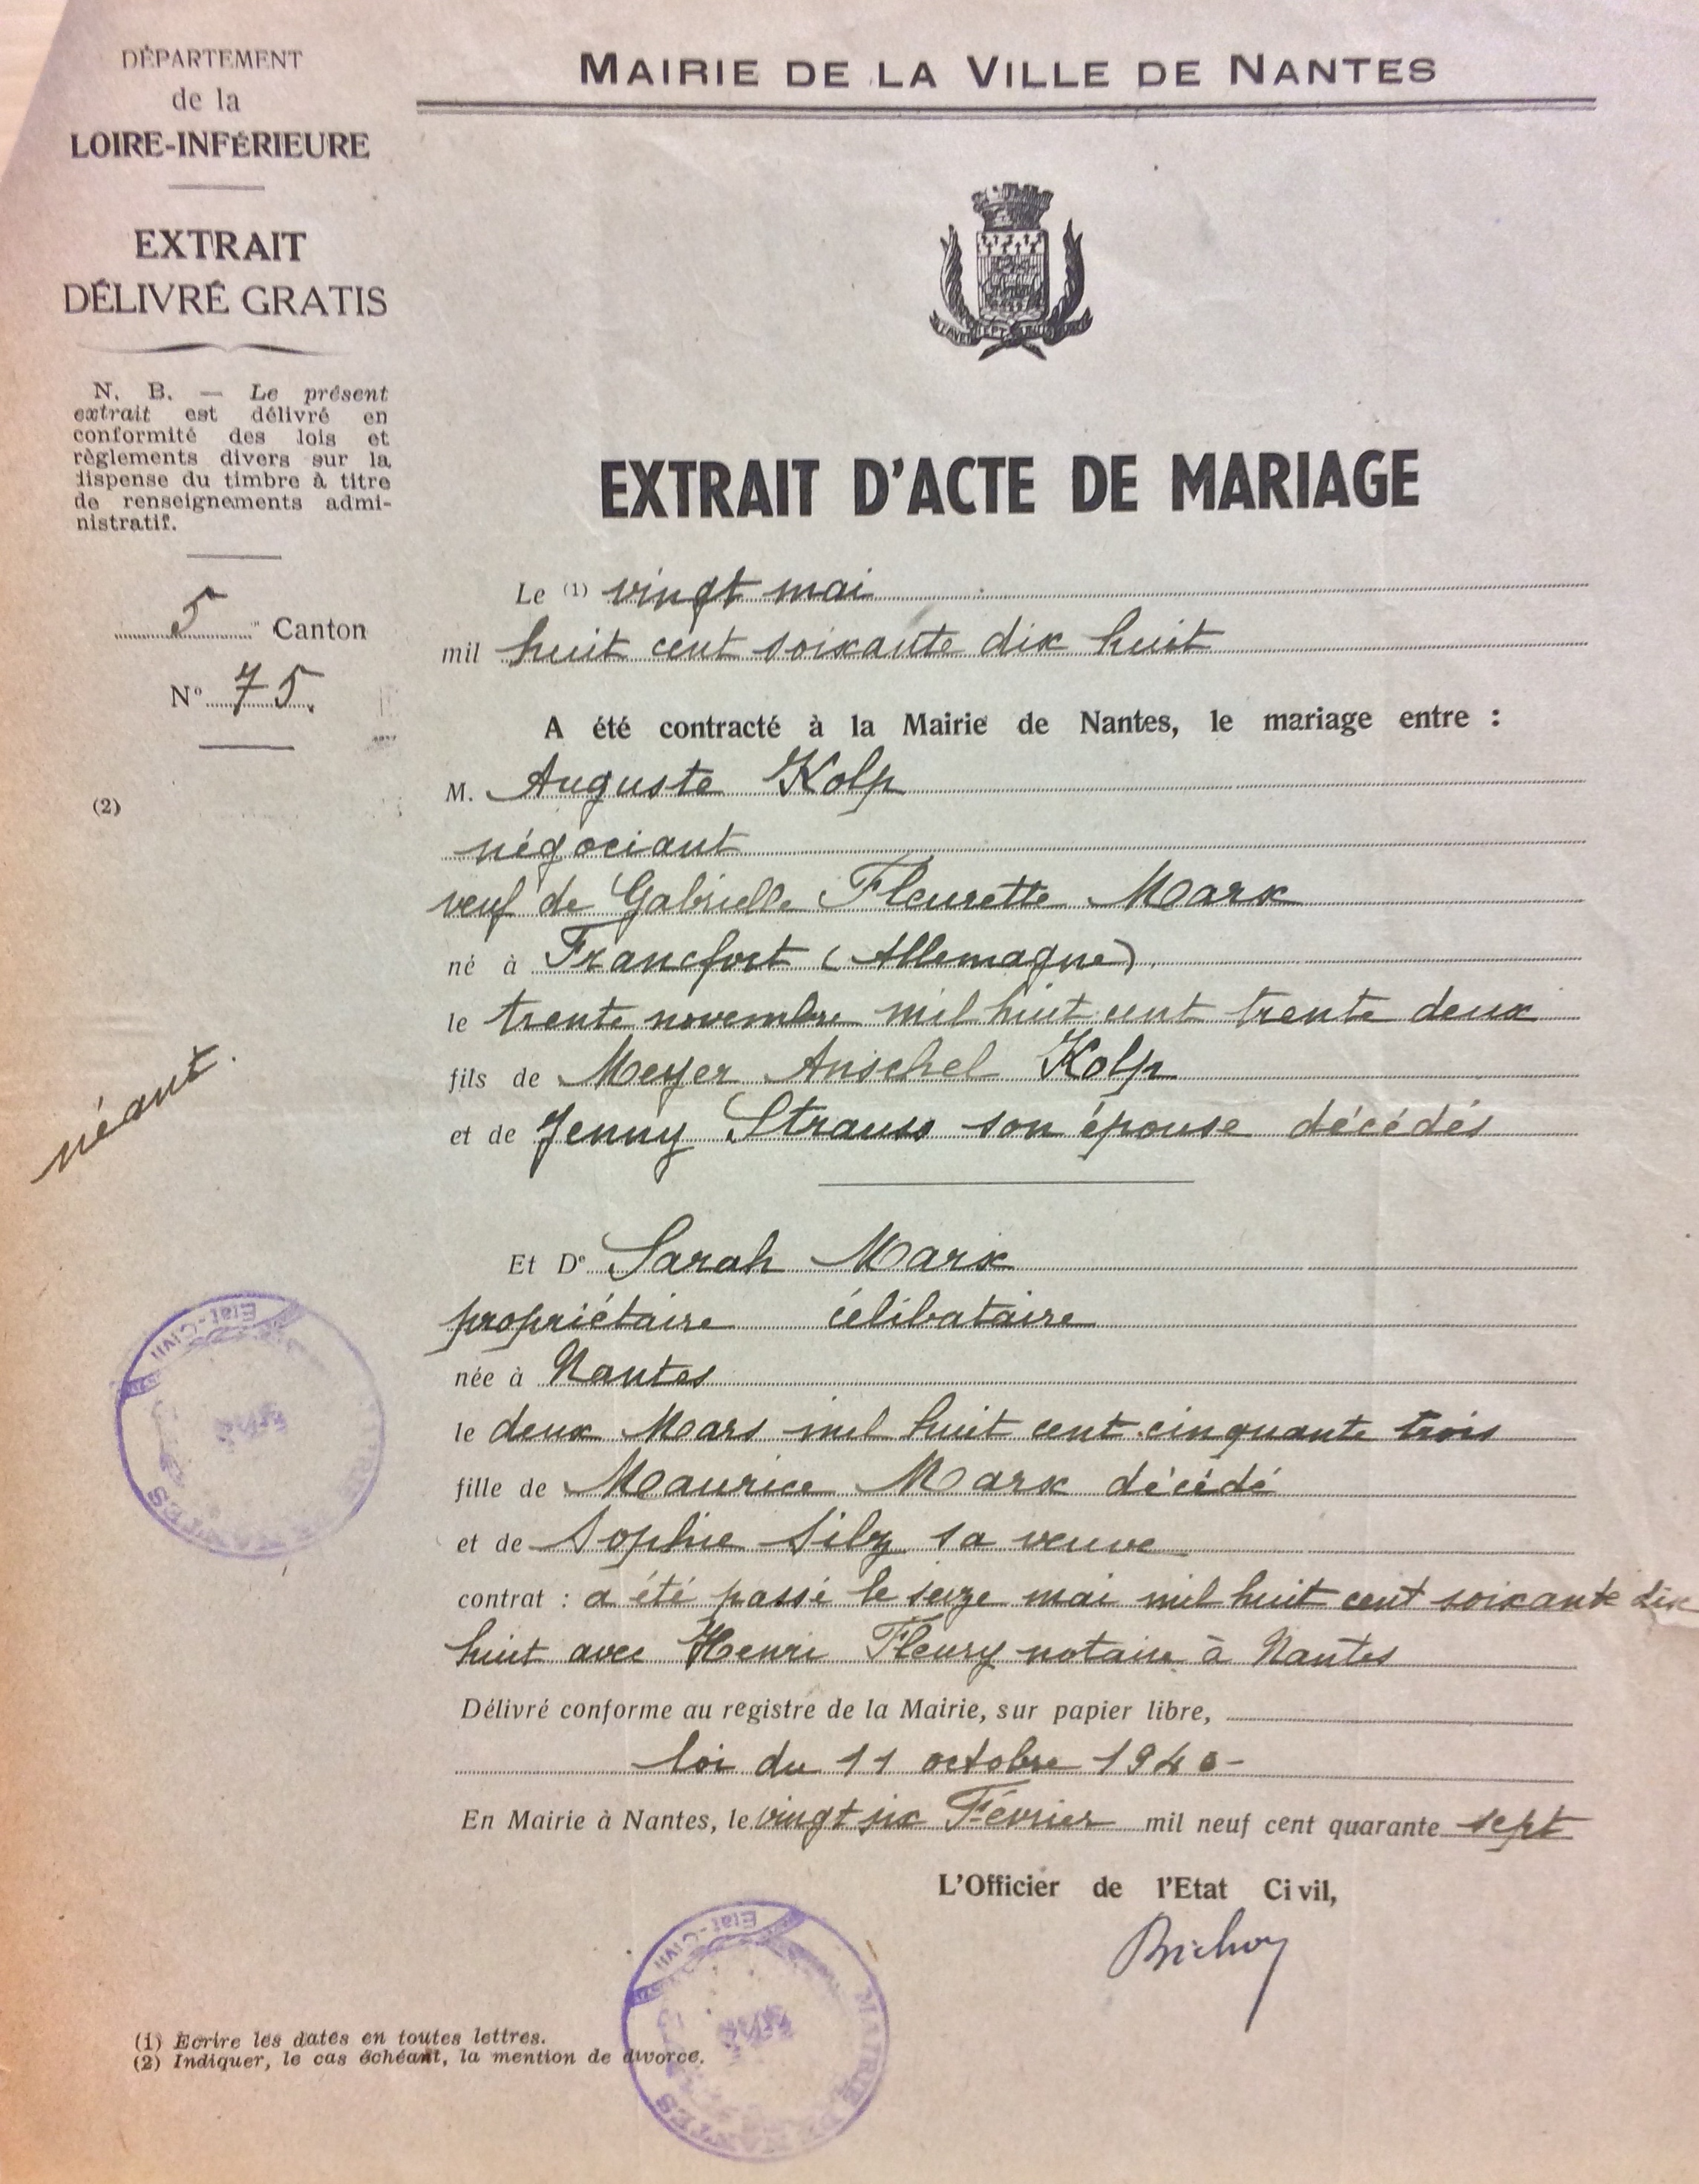 DÉPARTEMENT
de la
LOIRE-INFÉRIEURE
EXTRAIT
DÉLIVRÉ GRATIS
N. B. — Le présent
extrait est délivré en
conformité des lois et
règlements divers sur la
dispense du timbre à titre
de renseignements admi-
nistratif.
5 Canton
N° 75.
(2)
néant.
MAIRIE DE LA VILLE DE NANTES
EXTRAIT D'ACTE DE MARIAGE
Le (1) vingt mai
mil huit cent soixante dix huit
A été contracté à la Mairie de Nantes, le mariage entre :
M. Auguste Kolp
négociant
veuf de Gabrielle Fleurette Marx
né à Francfort (Allemagne)
le trente novembre mil huit cent trente deux
fils de Meyer Anschel Kolp
et de Jenny Strauss son épouse décédés
Et De Sarah Marx
propriétaire célibataire
née à Nantes
le deux Mars mil huit cent cinquante trois
fille de Maurice Marx décédé
et de Sophie Silz sa veuve
contrat : a été passé le seize mai mil huit cent soixante dix
huit avec Henri Fleury notaire à Nantes
Délivré conforme au registre de la Mairie, sur papier libre,
loi du 11 octobre 1940-
En Mairie à Nantes, le vingt six Février mil neuf cent quarante sept
L'Officier de l'Etat Civil,
Etat-Civil
MAIRIE DE NANTES
Etat-Civil
MAIRIE DE NANTES
(1) Ecrire les dates en toutes lettres.
(2) Indiquer, le cas échéant, la mention de divorce.